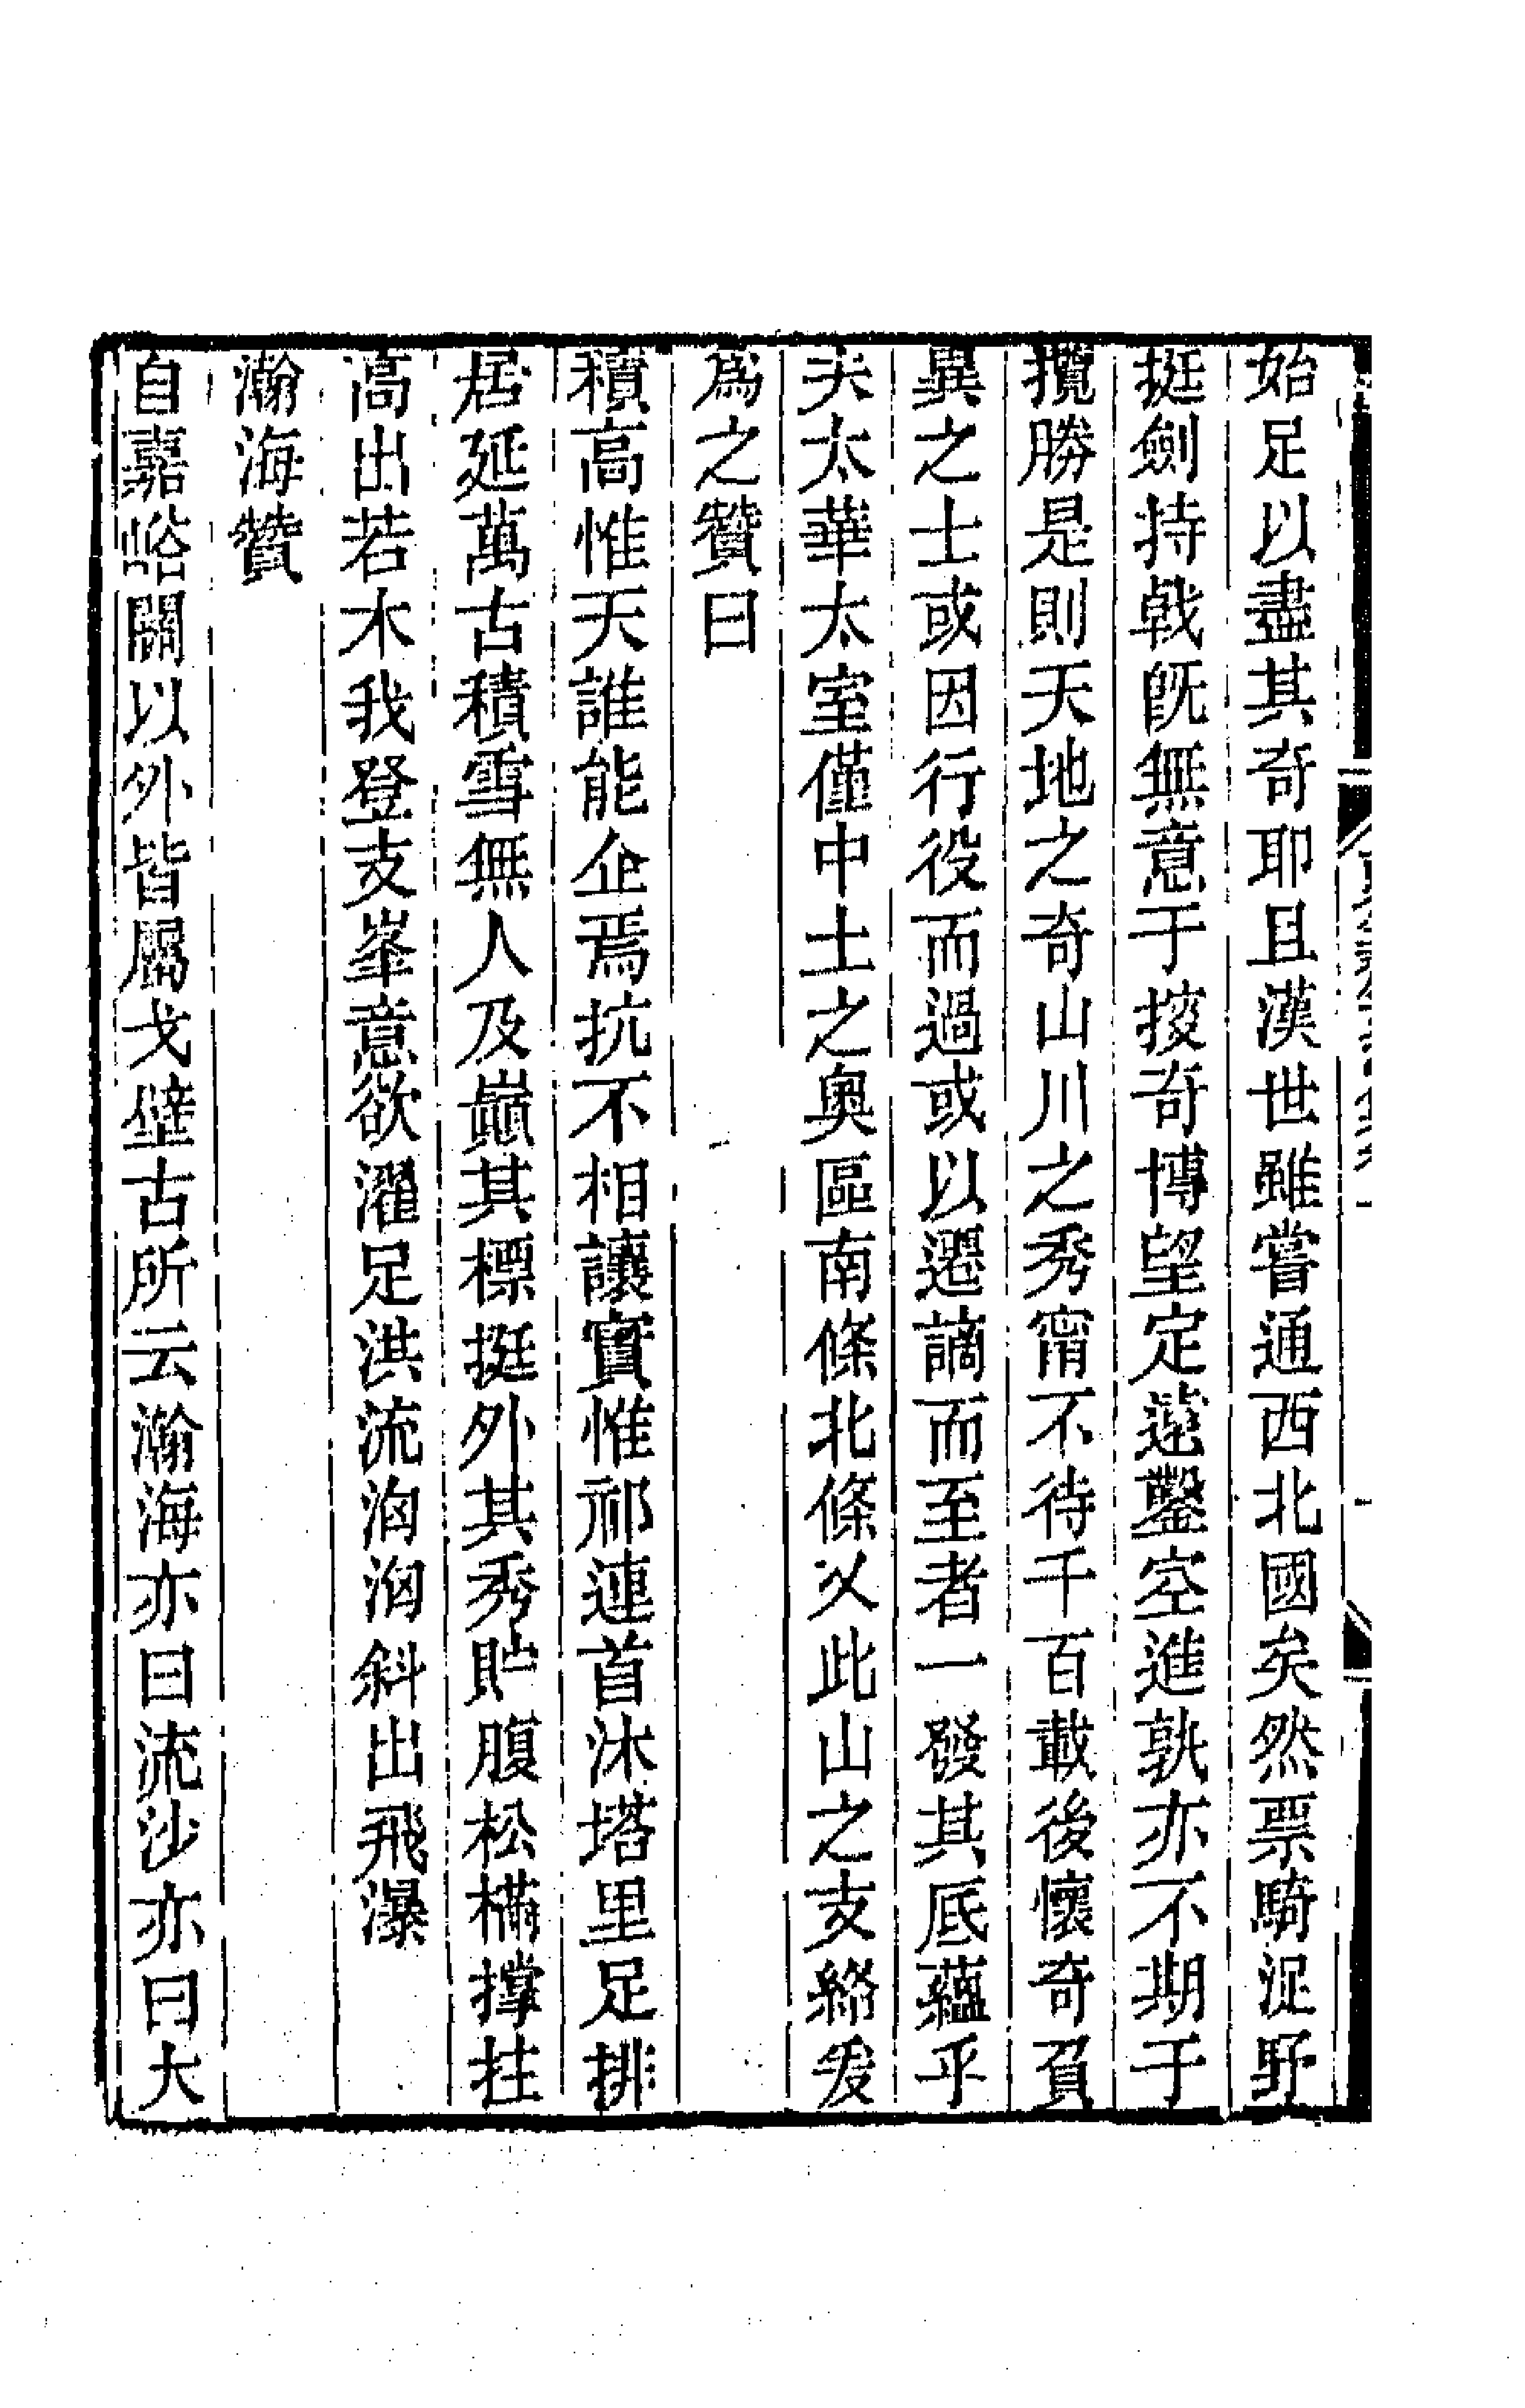 始足以盡其奇耶且漢世雖嘗通西北國矣然票騎浞野
挺劍持戟旣無意于搜奇博望定遠鑿空進孰亦不期于
攬勝是則天地之奇山川之秀甯不待千百載後懷奇負
異之士或因行役而過或以遷謫而至者一發其底蘊乎
夫太華太室僅中土之奧區南條北條乂此山之支絡爰
爲之贊曰
積高惟天誰能企焉抗不相讓實惟祁連首沐塔里足排
居延萬古積雪無人及巔其標挺外其秀貯腹松樠撐拄
高出若木我登支峯意欲濯足洪流洶洶斜出飛瀑
瀚海贊
自嘉峪關以外皆屬戈壁古所云瀚海亦曰流沙亦曰大